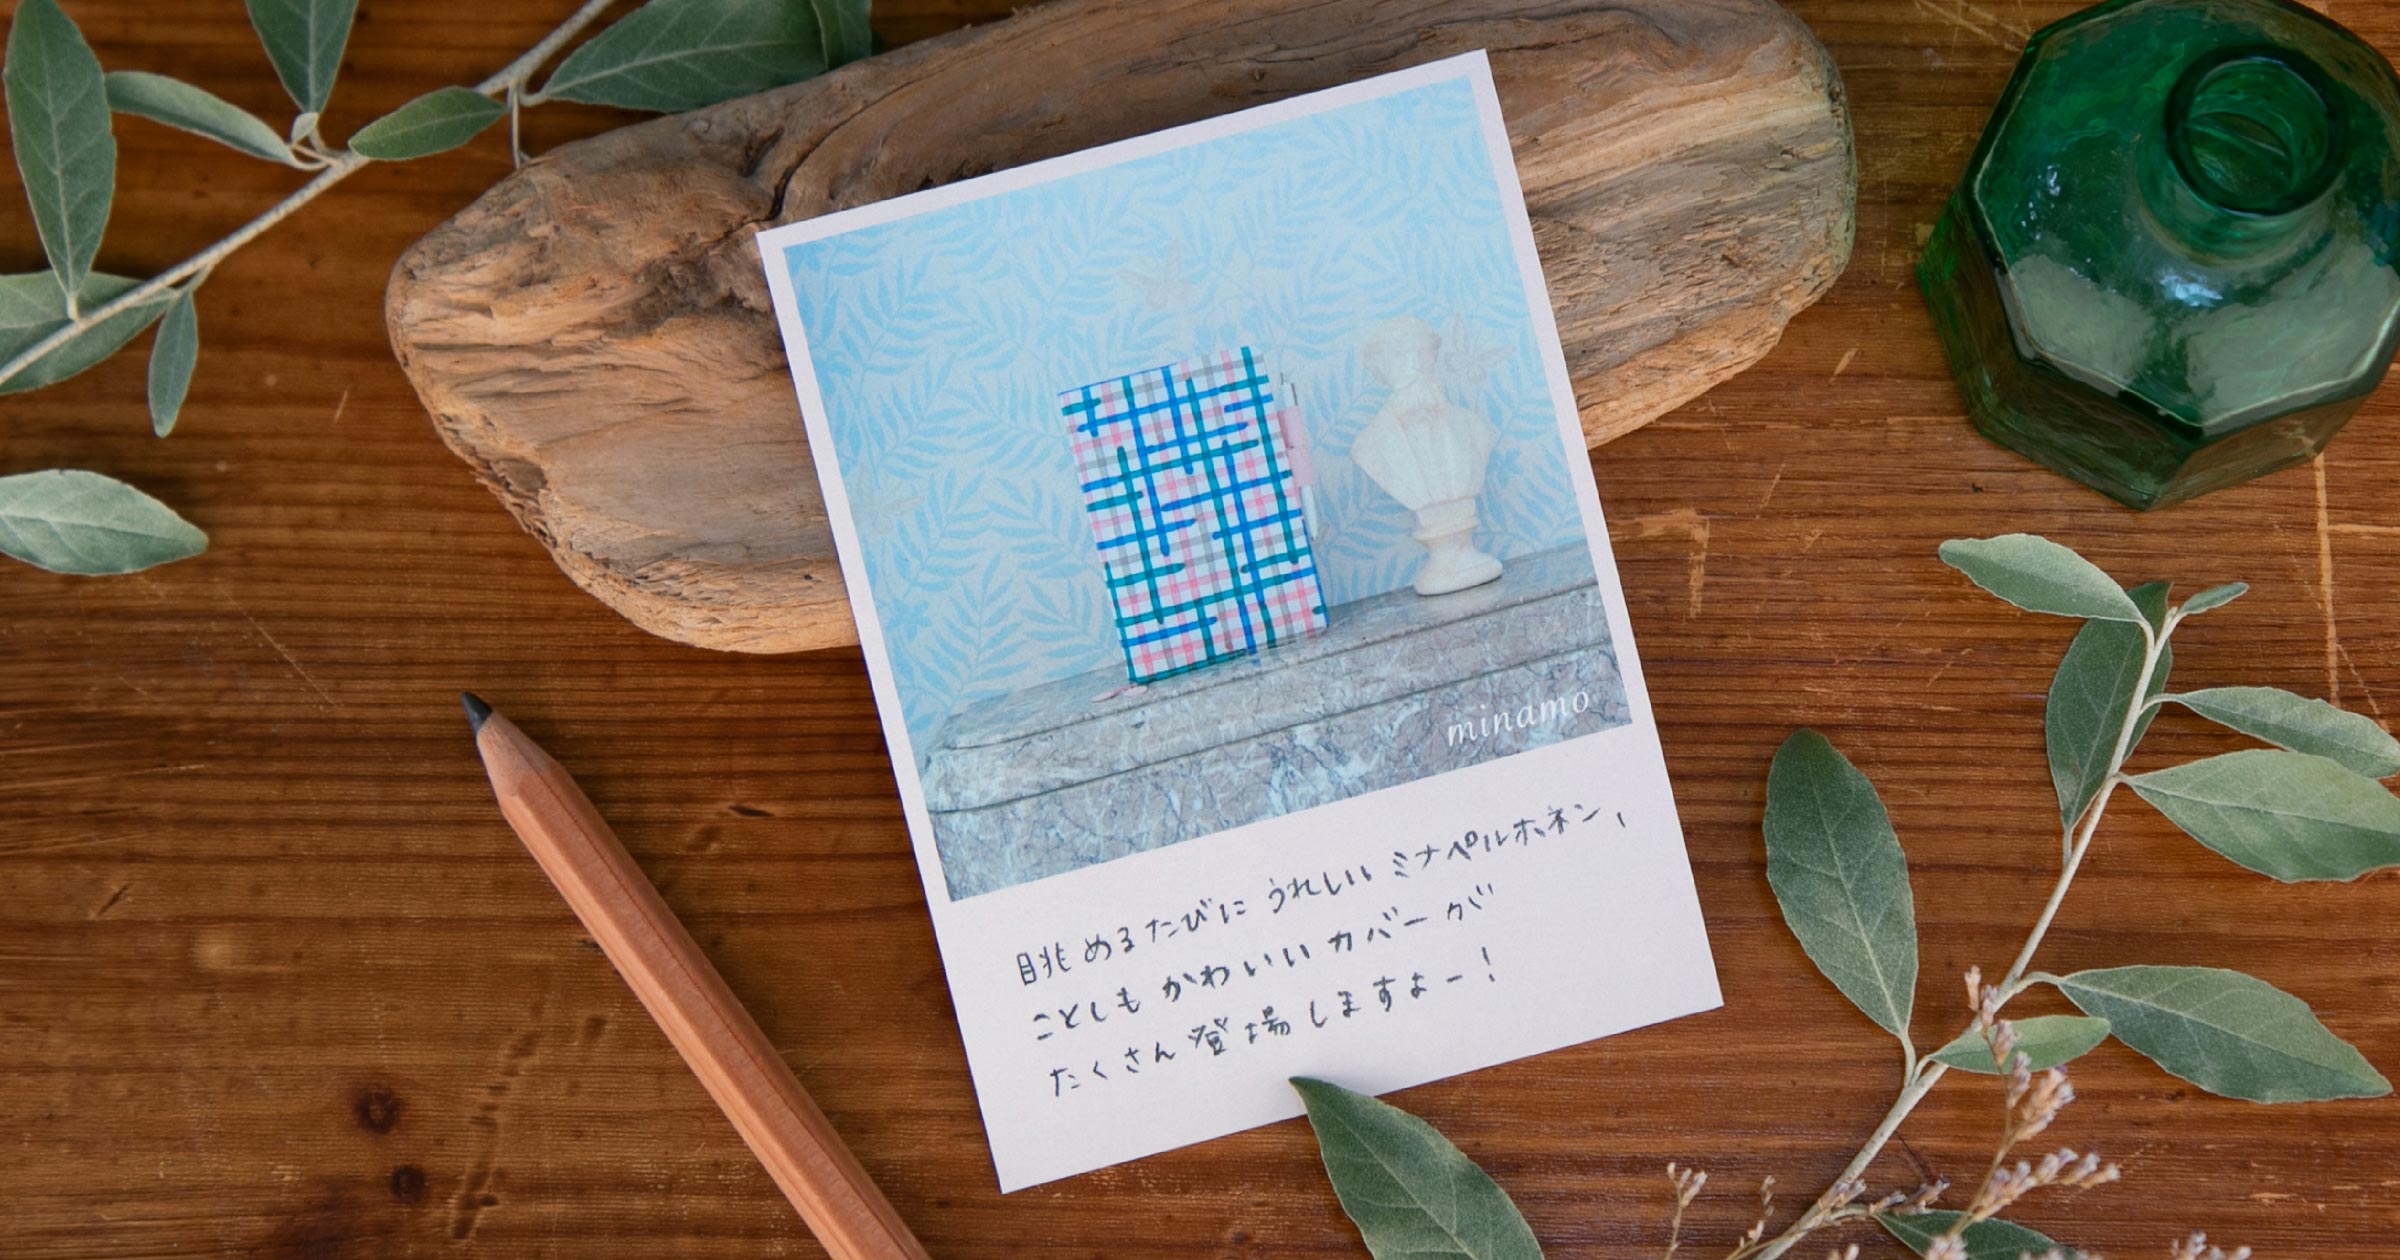 minamo
眺めるたびにうれしいミナペルホネン、
ことしもかわいいカバーが
たくさん登場しますよー!